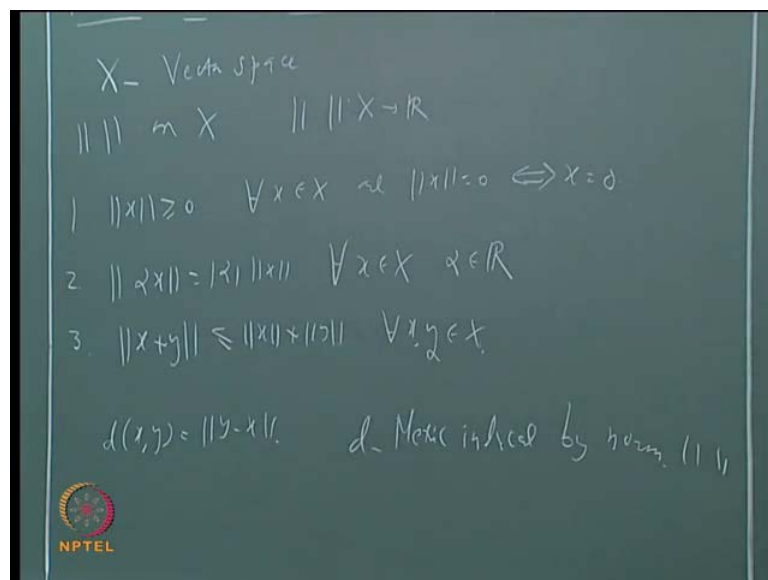 X - Vector space
|| || on X || || : X → ℝ
1 ||x|| ≥ 0 ∀ x ∈ X and ||x|| = 0 ⇔ x = 0.
2 ||αx|| = |α| ||x|| ∀ x ∈ X α ∈ ℝ
3. ||x+y|| ≤ ||x|| + ||y|| ∀ x, y ∈ X.
d(x,y) = ||y-x||. d - Metric induced by norm || ||
NPTEL